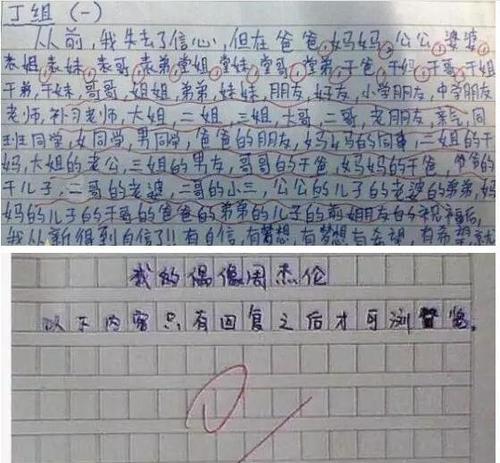 丁组 (一)
从前,我失去了信心,但在爸爸,妈妈,公公,婆婆,
表姐,表妹,表哥,表弟,堂姐,堂妹,堂哥,堂弟,干爸,干妈,干哥,干姐
干弟,干妹,哥哥,姐姐,弟弟,妹妹,朋友,好友,小学朋友,中学朋友
老师,补习老师,大姐,二姐,三姐,大哥,二哥,老朋友,亲戚,同
班同学,女同学,男同学,爸爸的朋友,妈妈的同事,二姐的干
妈,大姐的老公,三姐的男友,哥哥的干爸,妈妈的干爸,爷爷的
干儿子,二哥的老婆,二哥的小三,公公的儿子的老婆的弟弟,妈
妈的儿子的干哥的爸爸的弟弟的儿子的前女朋友的祝福后,
我从新得到自信了!!有自信,有梦想,有梦想有希望,有希望就
我的偶像周杰伦
以下内容只有回复之后才可浏览。